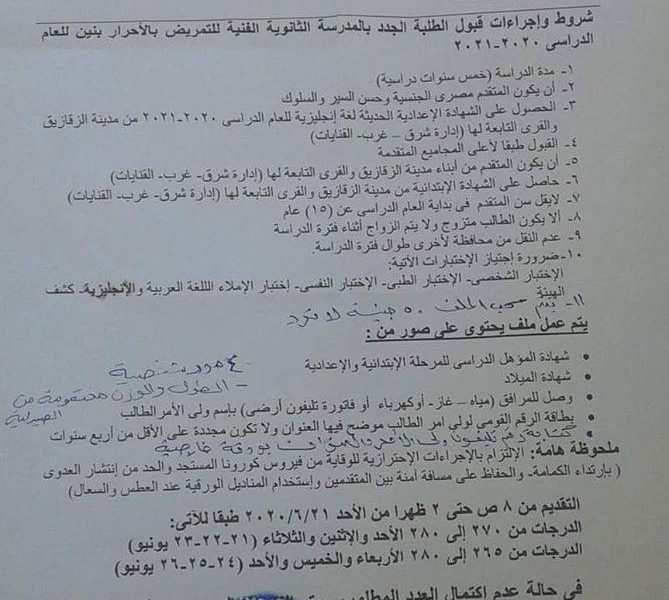 شروط وإجراءات قبول الطلبة الجدد بالمدرسة الثانوية الفنية للتمريض بالأحرار بنين للعام
الدراسى ٢٠٢٠-٢٠٢١
١- مدة الدراسة (خمس سنوات دراسية)
٢- أن يكون المتقدم مصرى الجنسية وحسن السير والسلوك
٣- الحصول على الشهادة الإعدادية الحديثة لغة إنجليزية للعام الدراسى ٢٠٢٠-٢٠٢١ من مدينة الزقازيق
والقرى التابعة لها (إدارة شرق – غرب- القنايات)
٤- القبول طبقا لأعلى المجاميع المتقدمة
٥- أن يكون المتقدم من أبناء مدينة الزقازيق والقرى التابعة لها (إدارة شرق- غرب- القنايات)
٦- حاصل على الشهادة الإبتدائية من مدينة الزقازيق والقرى التابعة لها (إدارة شرق- غرب- القنايات)
٧- لايقل سن المتقدم فى بداية العام الدراسى عن (١٥) عام
٨- ألا يكون الطالب متزوج ولا يتم الزواج أثناء فترة الدراسة
٩- عدم النقل من محافظة لأخرى طوال فترة الدراسة.
١٠- ضرورة إجتياز الإختبارات الآتية:
الإختبار الشخصى- الإختبار الطبى- الإختبار النفسى- إختبار الإملاء اللغة العربية والإنجليزية- كشف
الهيئة
١١- سحب الملف ٥٠ جنية لا ترد
يتم عمل ملف يحتوى على صور من :
٤ صور شخصية
• شهادة المؤهل الدراسى للمرحلة الإبتدائية والإعدادية
- الطول والوزن مختومة من الصيدلية
• شهادة الميلاد
• وصل للمرافق (مياه – غاز- أوكهرباء أو فاتورة تليفون أرضى) بإسم ولى الأمر الطالب
• بطاقة الرقم القومى لولى امر الطالب موضح فيها العنوان ولا تكون مجددة على الأقل من أربع سنوات
• كتابة رقم تليفون ولى الأمر والعنوان بورقة خارجية
ملحوظة هامة: الإلتزام بالإجراءات الإحترازية للوقاية من فيروس كورونا المستجد والحد من إنتشار العدوى
( بإرتداء الكمامة- والحفاظ على مسافة آمنة بين المتقدمين وإستخدام المناديل الورقية عند العطس والسعال)
التقديم من ٨ ص حتى ٢ ظهرا من الأحد ٢٠٢٠/٦/٢١ طبقا للآتى:
الدرجات من ٢٧٠ إلى ٢٨٠ الأحد والإثنين والثلاثاء (٢١-٢٢-٢٣ يونيو)
الدرجات من ٢٦٥ إلى ٢٨٠ الأربعاء والخميس والأحد (٢٤-٢٥-٢٦ يونيو)
فى حالة عدم اكتمال العدد المطلوب